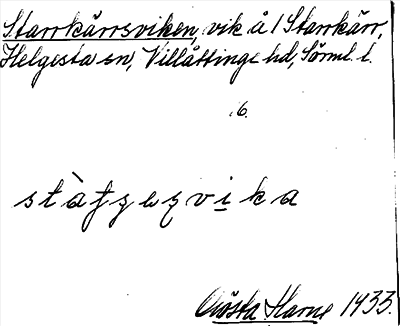 Starrkärrsviken, vik å 1 Starrkärr,
Helgesta sn, Villåttinge hd, Sörml. l.
6.
Gösta Harne 1933.